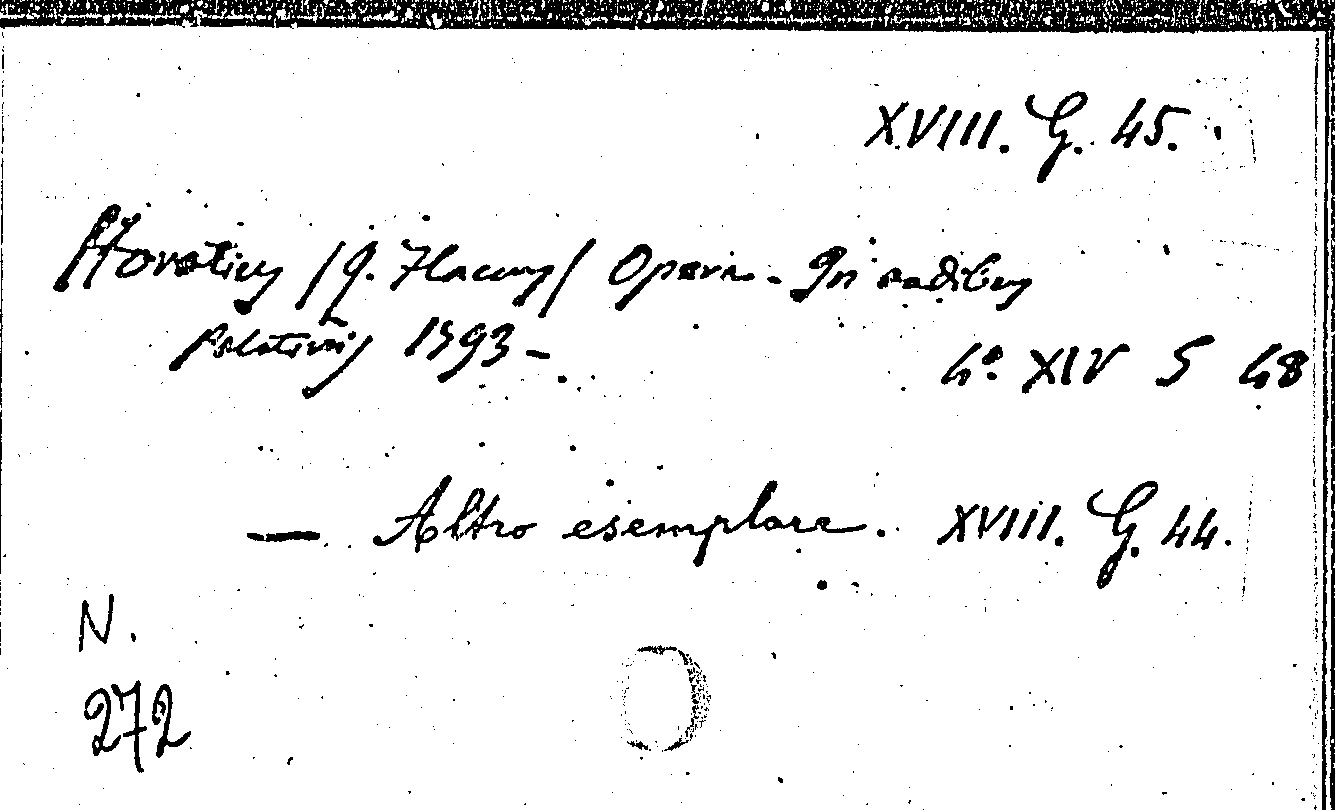 XVIII. G. 45.
Horatius /Q. Flaccus/ Opera. In ædibus
Palatinis 1793 -
4º XIV S 48
— Altro esemplare. XVIII. G. 44.
N.
272